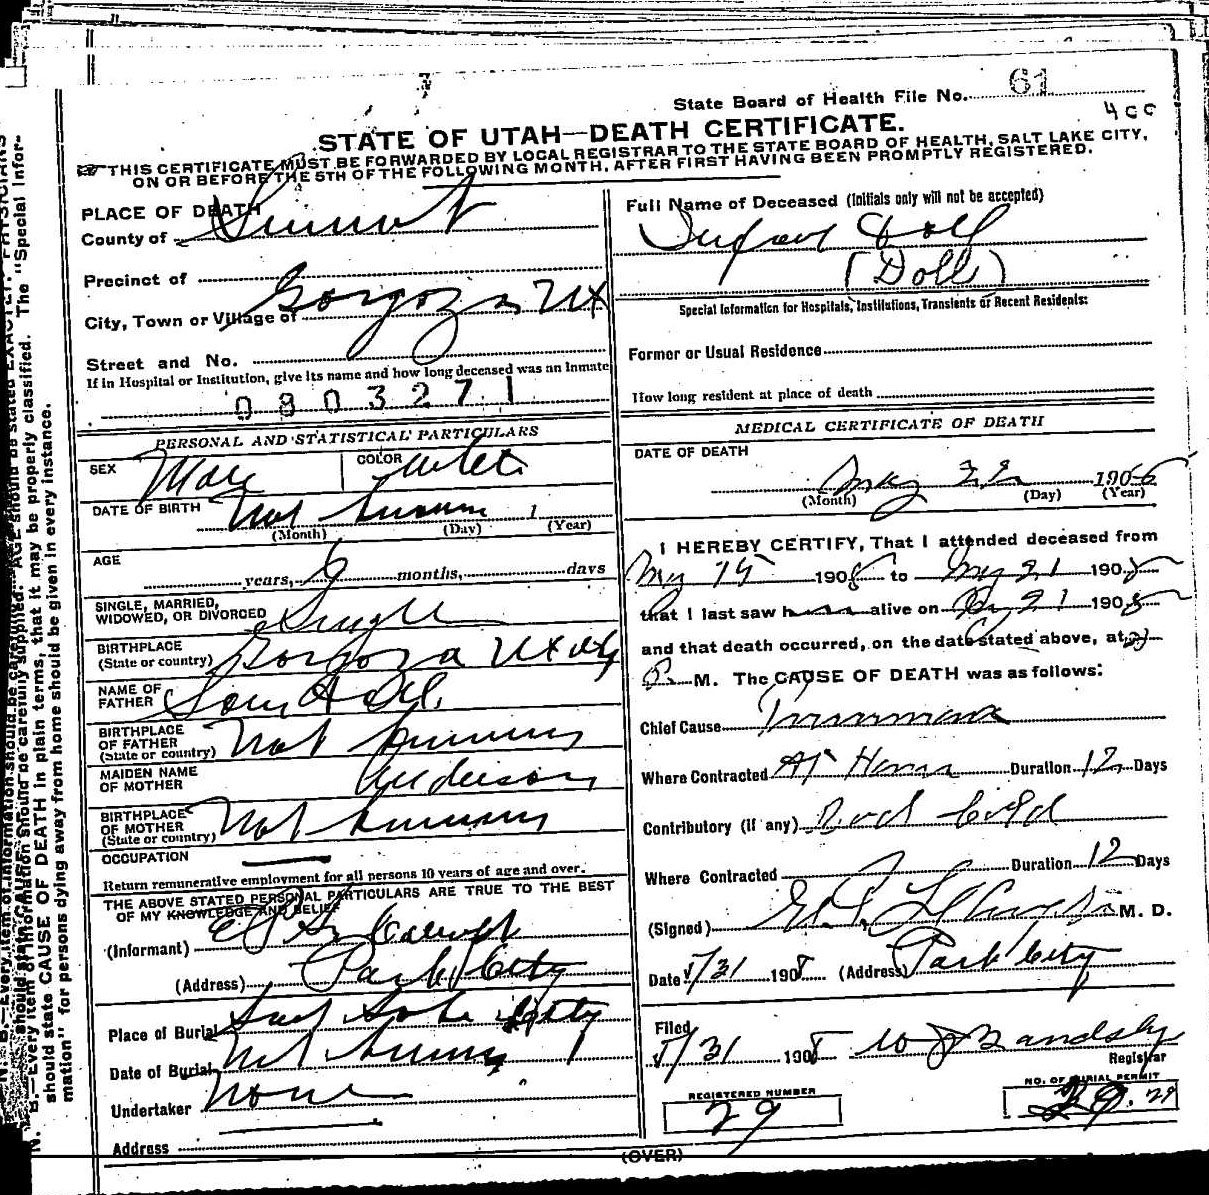 State Board of Health File No. 61
4cc
STATE OF UTAH—DEATH CERTIFICATE.
THIS CERTIFICATE MUST BE FORWARDED BY LOCAL REGISTRAR TO THE STATE BOARD OF HEALTH, SALT LAKE CITY,
ON OR BEFORE THE 5TH OF THE FOLLOWING MONTH, AFTER FIRST HAVING BEEN PROMPTLY REGISTERED.
PLACE OF DEATH
County of Summit
Precinct of
City, Town or Village of Gorgoza Ut
Street and No.
If in Hospital or Institution, give its name and how long deceased was an Inmate
0 8 0 3 2 7 1
PERSONAL AND STATISTICAL PARTICULARS
SEX Male COLOR White
DATE OF BIRTH Not Known 1
(Month) (Day) (Year)
AGE
years, 6 months, days
SINGLE, MARRIED,
WIDOWED, OR DIVORCED Single
BIRTHPLACE
(State or country) Gorgoza Utah
NAME OF
FATHER
BIRTHPLACE
OF FATHER
(State or country) Not Known
MAIDEN NAME
OF MOTHER Anderson
BIRTHPLACE
OF MOTHER
(State or country) Not Known
OCCUPATION
Return remunerative employment for all persons 10 years of age and over.
THE ABOVE STATED PERSONAL PARTICULARS ARE TRUE TO THE BEST
OF MY KNOWLEDGE AND BELIEF
(Informant)
(Address) Park City
Place of Burial Salt Lake City
Date of Burial Not Known 1
Undertaker None
Address
Full Name of Deceased (Initials only will not be accepted)
Infant Doll
(Doll)
Special Information for Hospitals, Institutions, Transients or Recent Residents:
Former or Usual Residence
How long resident at place of death
MEDICAL CERTIFICATE OF DEATH
DATE OF DEATH
May 22 190
(Month) (Day) (Year)
I HEREBY CERTIFY, That I attended deceased from
May 15 1908 to May 21 1908
that I last saw h alive on 21 1908
and that death occurred, on the date stated above, at
M. The CAUSE OF DEATH was as follows:
Chief Cause Pneumonia
Where Contracted At Home Duration 12 Days
Contributory (if any) Bad Cold
Where Contracted Duration 12 Days
(Signed) M. D.
Date 5/31 1908 (Address) Park City
Filed
5/31 1908
Registrar
REGISTERED NUMBER
29
NO. OF BURIAL PERMIT
29
(OVER)
N. B.—Every item of information should be carefully supplied. AGE should be stated EXACTLY. PHYSICIANS
should state CAUSE OF DEATH in plain terms, that it may be properly classified. The "Special Infor-
mation" for persons dying away from home should be given in every instance.